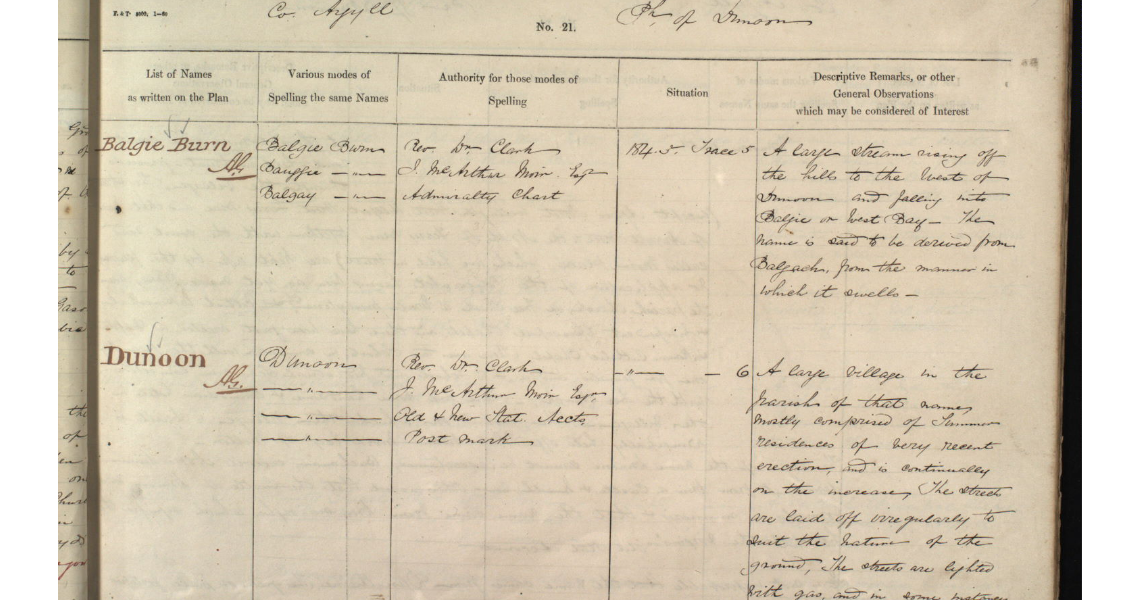 Co. Argyll
Ph. of Dunoon
No. 21.
List of Names
as written on the Plan
Various modes of
Spelling the same Names
Authority for those modes of
Spelling
Situation
Descriptive Remarks, or other
General Observations
which may be considered of Interest
Balgie Burn
Balgie Burn
Rev. Dr. Clark
184.5. Trace 5
A large stream rising off
Bauggie — " —
J. McArthur Moir. Esqr
the hills to the West of
Balgay — " —
Admiralty Chart
Dunoon and falling into
Balgie or West Bay — The
name is said to be derived from
Balgach, from the manner in
which it swells —
Dunoon
Dunoon
Rev. Dr. Clark
— " — — 6
A large village in the
— " —
J. McArthur Moir Esqr
parish of that name,
— " —
Old & New Stat. Accts
mostly comprised of Summer
— " —
Post mark
residences of very recent
erection, and is continually
on the increase, The streets
are laid off irregularly to
suit the nature of the
ground, The streets are lighted
with gas, and in some instances